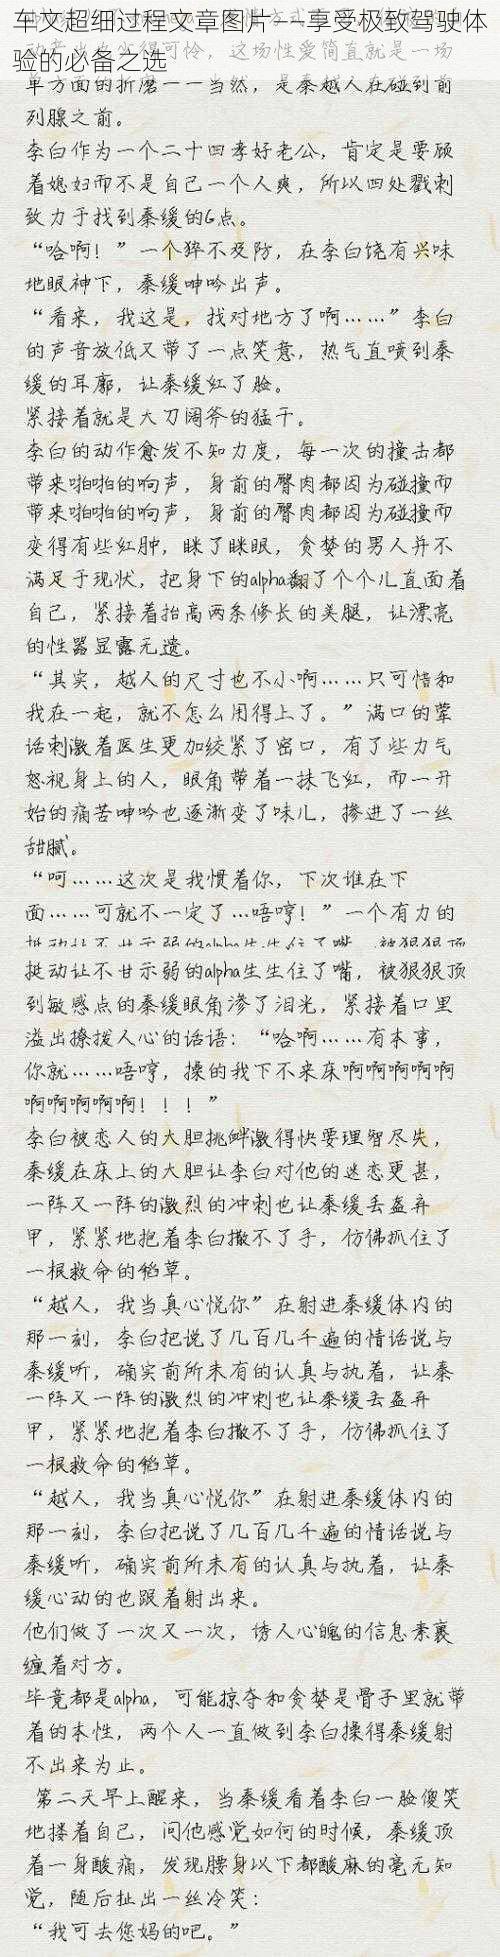 车文超细过程文章图片——享受极致驾驶体
验的必备之选
单方面的折磨——当然，是秦越人在碰到前
列腺之前。
李白作为一个二十四孝好老公，肯定是要顾
着媳妇而不是自己一个人爽，所以四处戳刺
致力于找到秦缓的G点。
“哈啊！”一个猝不及防，在李白饶有兴味
地眼神下，秦缓呻吟出声。
“看来，我这是，找对地方了啊……”李白
的声音放低又带了一点笑意，热气直喷到秦
缓的耳廓，让秦缓红了脸。
紧接着就是大刀阔斧的猛干。
李白的动作愈发不知力度，每一次的撞击都
带来啪啪的响声，身前的臀肉都因为碰撞而
带来啪啪的响声，身前的臀肉都因为碰撞而
变得有些红肿，眯了眯眼，贪婪的男人并不
满足于现状，把身下的alpha翻了个个儿直面着
自己，紧接着抬高两条修长的美腿，让漂亮
的性器显露无遗。
“其实，越人的尺寸也不小啊……只可惜和
我在一起，就不怎么用得上了。”满口的荤
话刺激着医生更加绞紧了密口，有了些力气
怒视身上的人，眼角带着一抹飞红，而一开
始的痛苦呻吟也逐渐变了味儿，掺进了一丝
甜腻。
“呵……这次是我惯着你，下次谁在下
面……可就不一定了…唔哼！”一个有力的
挺动让不甘示弱的alpha生生住了嘴，被狠狠顶
挺动让不甘示弱的alpha生生住了嘴，被狠狠顶
到敏感点的秦缓眼角渗了泪光，紧接着口里
溢出撩拨人心的话语：“哈啊……有本事，
你就……唔哼，操的我下不来床啊啊啊啊啊
啊啊啊啊啊！！！”
李白被恋人的大胆挑衅激得快要理智尽失，
秦缓在床上的大胆让李白对他的迷恋更甚，
一阵又一阵的激烈的冲刺也让秦缓丢盔弃
甲，紧紧地抱着李白撒不了手，仿佛抓住了
一根救命的稻草。
“越人，我当真心悦你”在射进秦缓体内的
那一刻，李白把说了几百几千遍的情话说与
秦缓听，确实前所未有的认真与执着，让秦
一阵又一阵的激烈的冲刺也让秦缓丢盔弃
甲，紧紧地抱着李白撒不了手，仿佛抓住了
一根救命的稻草。
“越人，我当真心悦你”在射进秦缓体内的
那一刻，李白把说了几百几千遍的情话说与
秦缓听，确实前所未有的认真与执着，让秦
缓心动的也跟着射出来。
他们做了一次又一次，诱人心魄的信息素裹
缠着对方。
毕竟都是alpha，可能掠夺和贪婪是骨子里就带
着的本性，两个人一直做到李白操得秦缓射
不出来为止。
第二天早上醒来，当秦缓看着李白一脸傻笑
地搂着自己，问他感觉如何的时候，秦缓顶
着一身酸痛，发现腰身以下都酸麻的毫无知
觉，随后扯出一丝冷笑：
“我可去您妈的吧。”